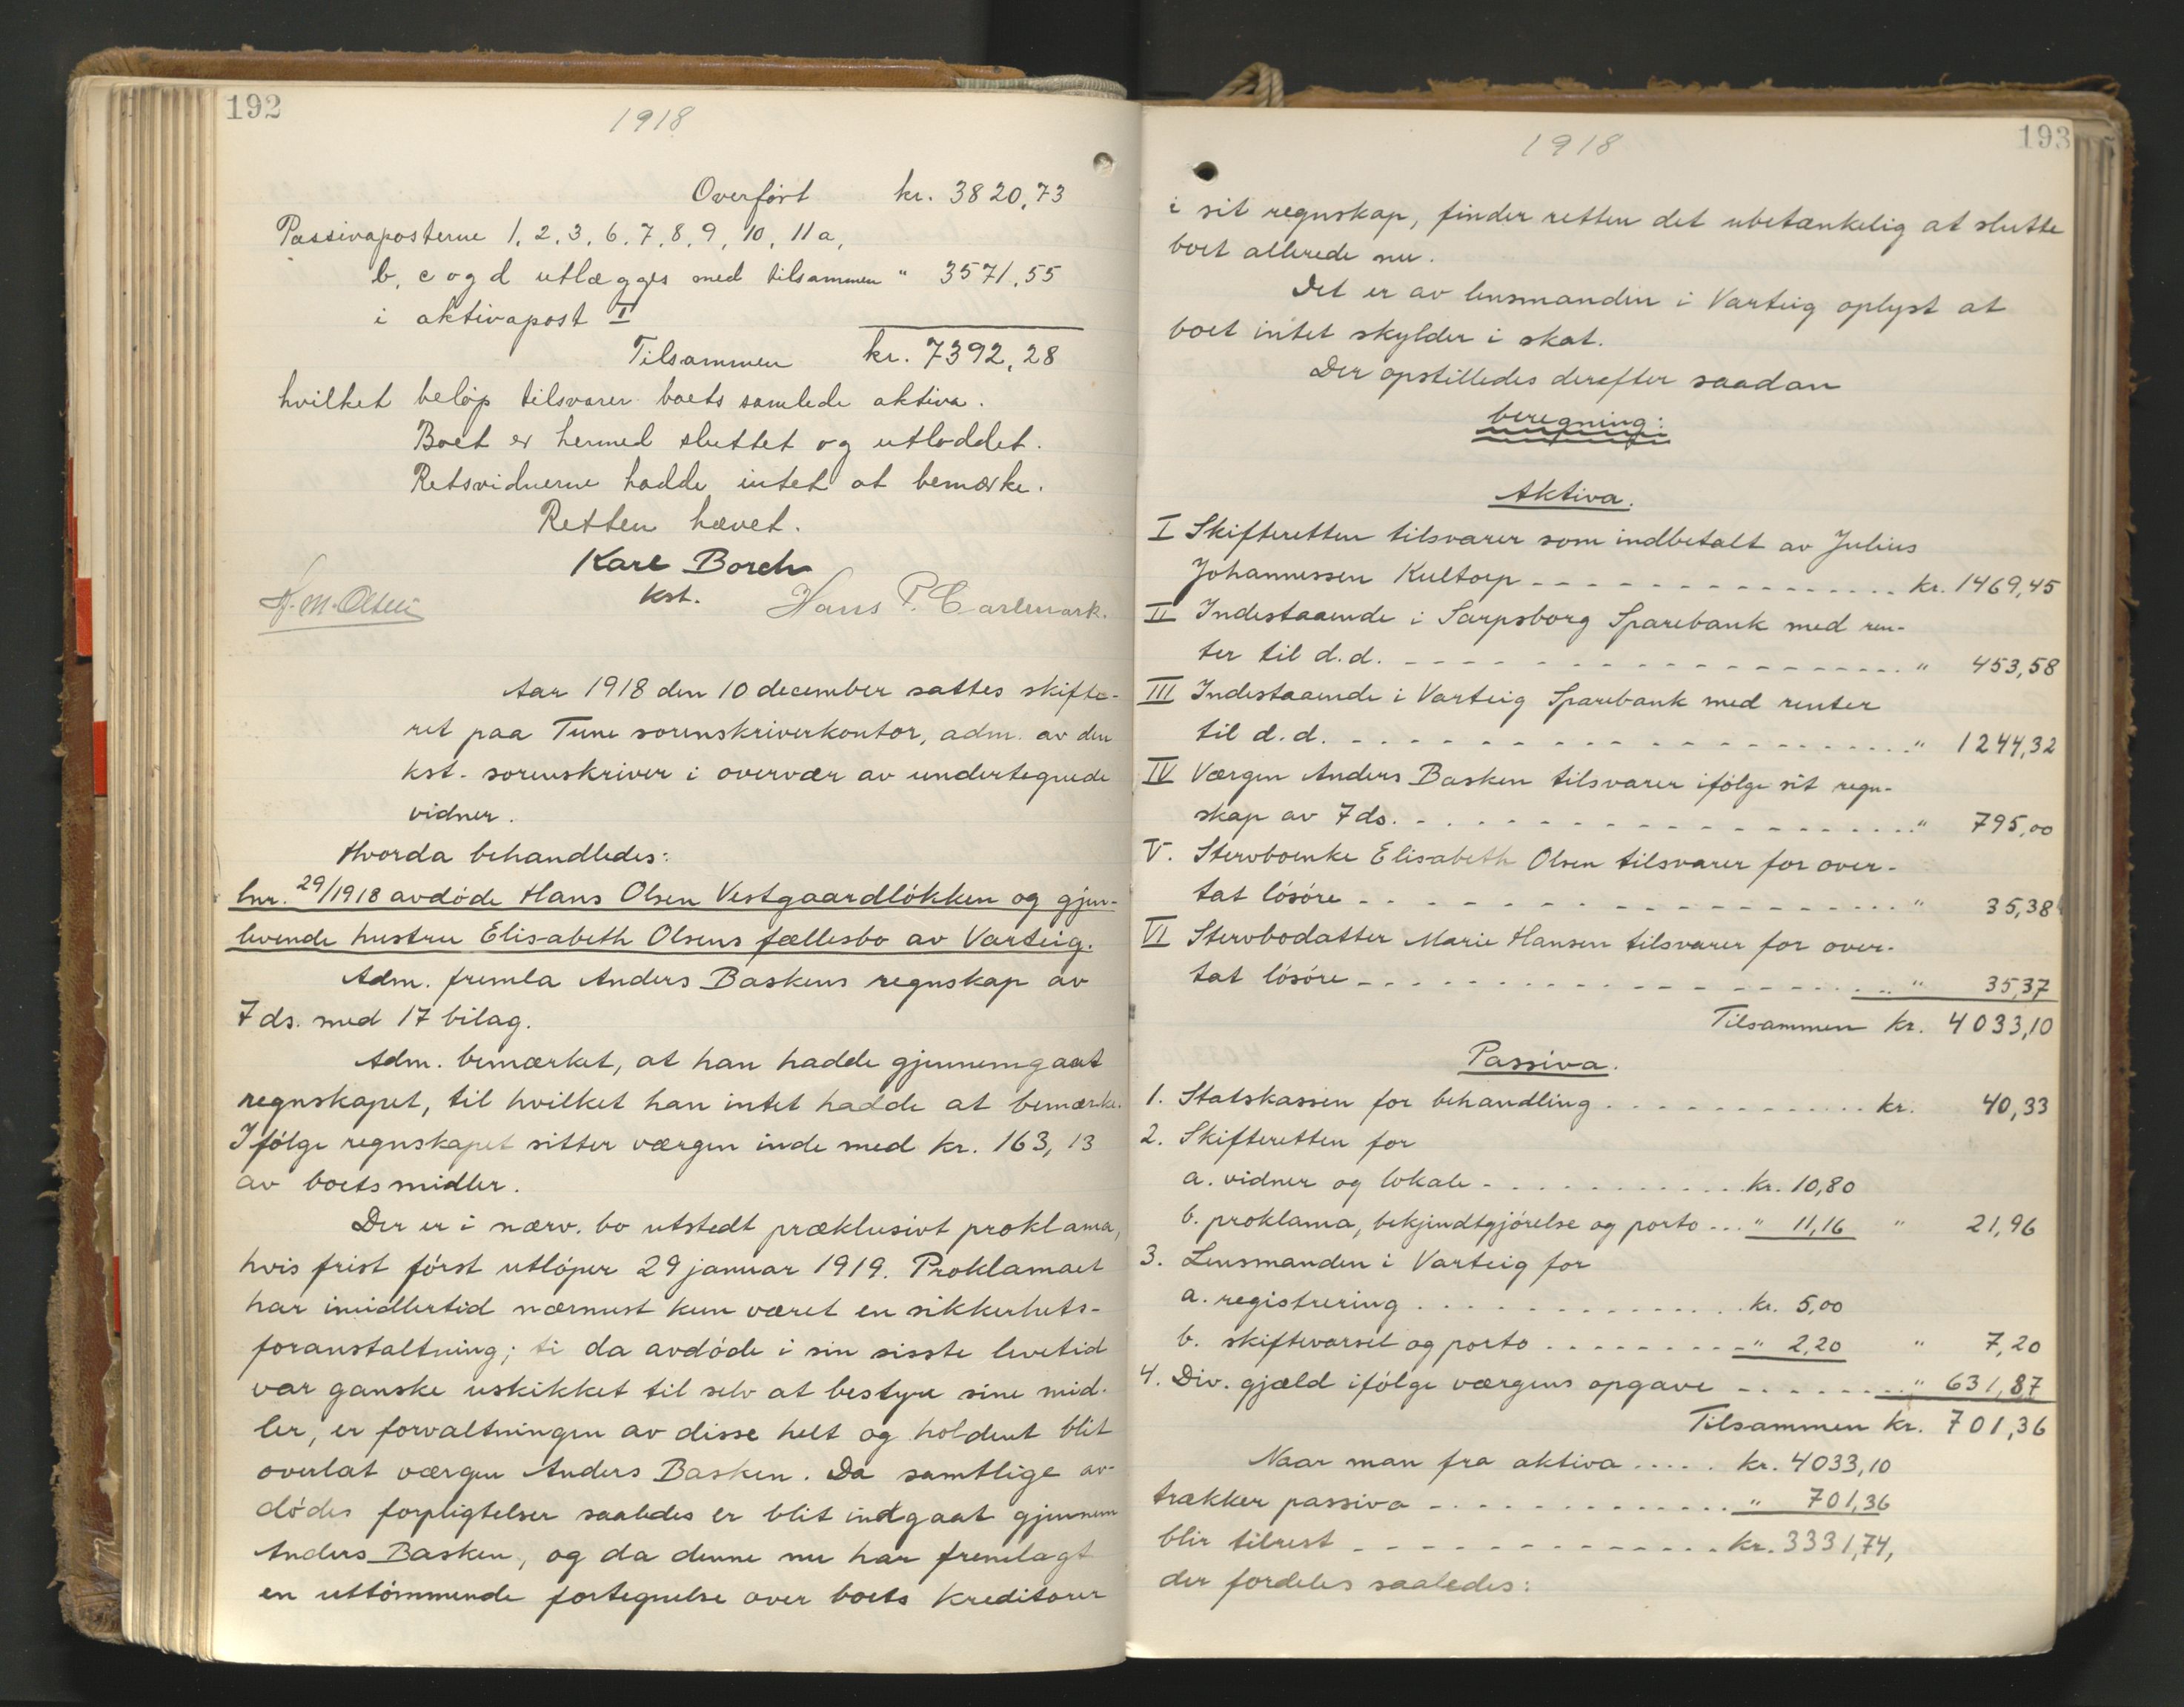 192
1918
Overført kr. 3820,73
Passivaposterne 1, 2, 3, 6, 7, 8, 9, 10, 11a,
b, c og d utlægges med tilsammen " 3571,55
i aktivapost I
Tilsammen kr. 7392,28
hvilket beløp tilsvarer boets samlede aktiva.
Boet er hermed sluttet og utloddet.
Retsvidnerne hadde intet at bemærke.
Retten hævet.
Karl Borch
kst.
H. M. Olsen Hans P. Carlmark.
Aar 1918 den 10 december sattes skifte-
ret paa Tune sorenskriverkontor, adm. av den
kst. sorenskriver i overvær av undertegnede
vidner.
Hvorda behandledes:
lnr. 29/1918 avdøde Hans Olsen Vestgaardløkken og gjen-
levende hustru Elisabeth Olsens fællesbo av Varteig.
Adm. fremla Anders Baskens regnskap av
7 ds. med 17 bilag.
Adm. bemærket, at han hadde gjennemgaat
regnskapet, til hvilket han intet hadde at bemærke.
Ifølge regnskapet sitter værgen inde med kr. 163,13
av boets midler.
Der er i nærv. bo utstedt præklusivt proklama,
hvis frist først utløper 29 januar 1919. Proklamaet
har imidlertid nærmest kun været en sikkerhets-
foranstaltning; ti da avdøde i sin sisste levetid
var ganske uskikket til selv at bestyre sine mid-
ler, er forvaltningen av disse helt og holdent blit
overlat værgen Anders Basken. Da samtlige av-
dødes forpligtelser saaledes er blit indgaat gjennem
Anders Basken, og da denne nu har fremlagt
en uttømmende fortegnelse over boets kreditorer
193
1918
i sit regnskap, finder retten det ubetænkelig at slutte
boet allerede nu.
Det er av lensmanden i Varteig oplyst at
boet intet skylder i skat.
Der opstilledes derefter saadan
beregning:
Aktiva.
I Skifteretten tilsvarer som indbetalt av Julius
Johannessen Kultorp - - - kr. 1469,45
II Indestaaende i Sarpsborg Sparebank med ren-
ter til d.d. - - - " 453,58
III Indestaaende i Varteig Sparebank med renter
til d.d. - - - " 1244,32
IV Værgen Anders Basken tilsvarer ifølge sit regn-
skap av 7 ds. - - - " 795,00
V. Stervboenke Elisabeth Olsen tilsvarer for over-
tat løsøre - - - " 35,38
VI Stervbodatter Marie Hansen tilsvarer for over-
tat løsøre - - - " 35,37
Tilsammen kr. 4033,10
Passiva.
1. Statskassen for behandling . . . kr. 40,33
2. Skifteretten for
a. vidner og lokale - . . . kr. 10,80
b. proklama, bekjendtgjørelse og porto ... " 11,16 " 21,96
3. Lensmanden i Varteig for
a. registrering . . . kr. 5,00
b. skiftevarsel og porto . . . " 2,20 " 7,20
4. Div. gjæld ifølge værgens opgave - . . . " 631,87
Tilsammen kr. 701,36
Naar man fra aktiva ..... kr. 4033,10
trækker passiva - . . . " 701,36
blir tilrest - - - kr. 3331,74,
der fordeles saaledes: